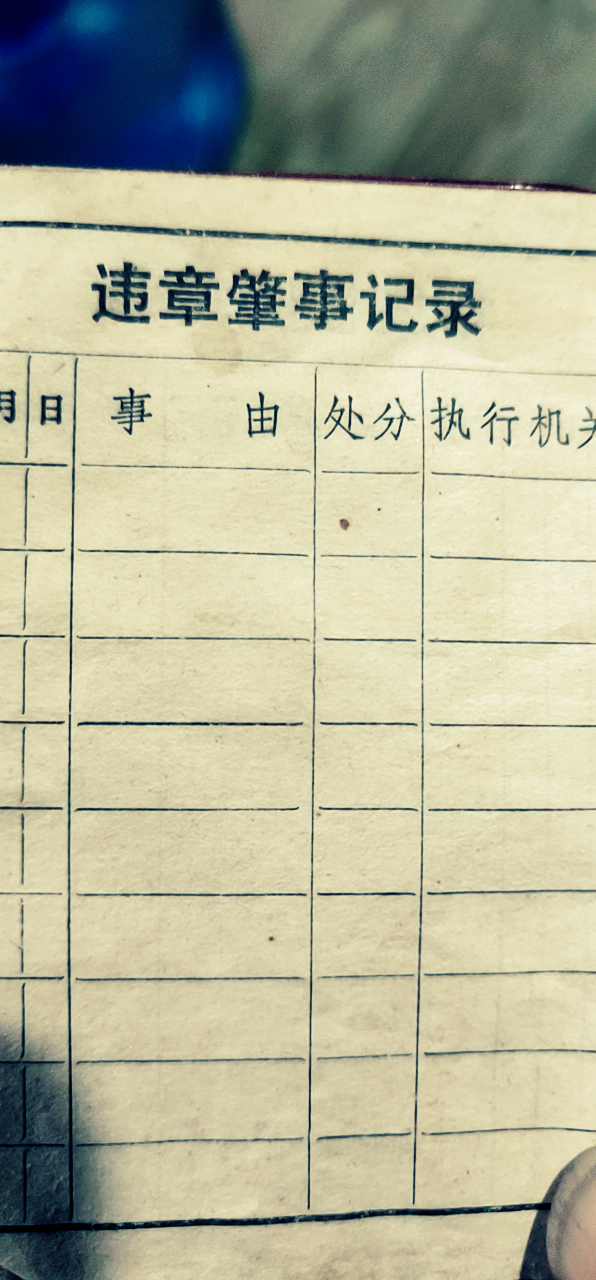 违章肇事记录
月 日 事 由 处分 执行机关